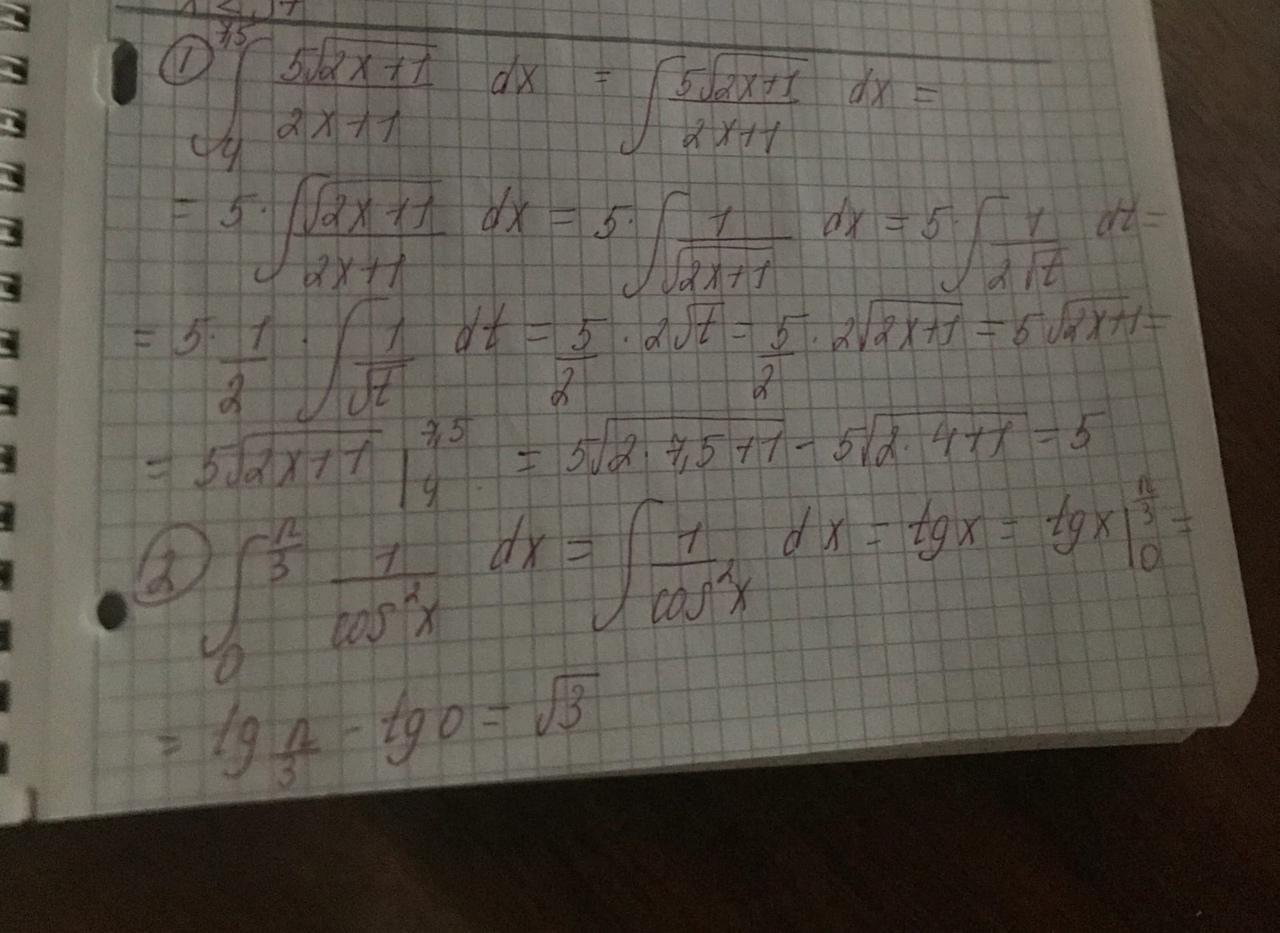 ① ∫₄^7,5 5√(2x+1)/(2x+1) dx = ∫ 5√(2x+1)/(2x+1) dx =
= 5·∫ √(2x+1)/(2x+1) dx = 5·∫ 1/√(2x+1) dx = 5·∫ 1/(2√t) dt =
= 5·1/2·∫ 1/√t dt = 5/2·2√t = 5/2·2√(2x+1) = 5√(2x+1) =
= 5√(2x+1) |₄^7,5 = 5√(2·7,5+1) - 5√(2·4+1) = 5
② ∫₀^(π/3) 1/cos²x dx = ∫ 1/cos²x dx = tgx = tgx |₀^(π/3) =
= tg π/3 - tg 0 = √3